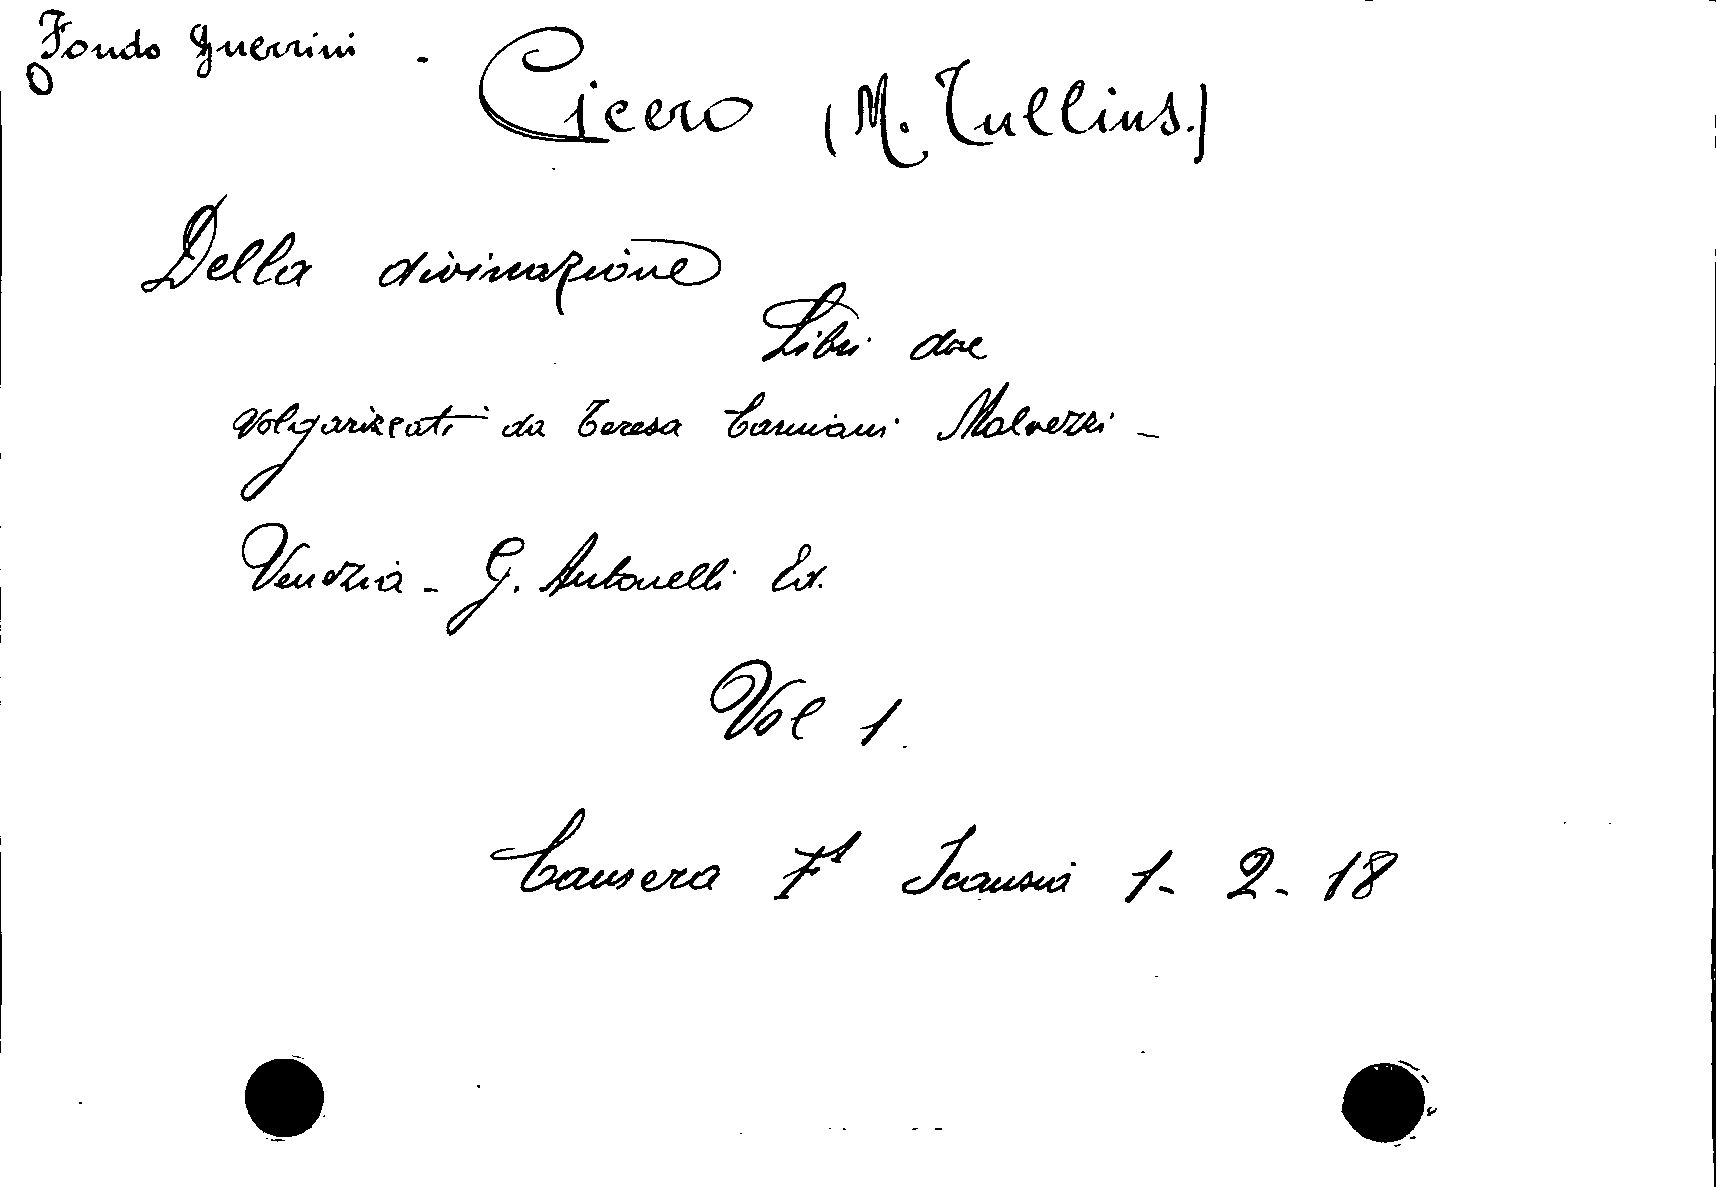 Fondo Guerrini -
Cicero (M. Tullius.)
Della divinazione
Libri due
volgarizzati da Teresa Carniani Malvezzi -
Venezia - G. Antonelli Ed.
Vol 1.
Camera Fª Scansia 1 - 2 - 18